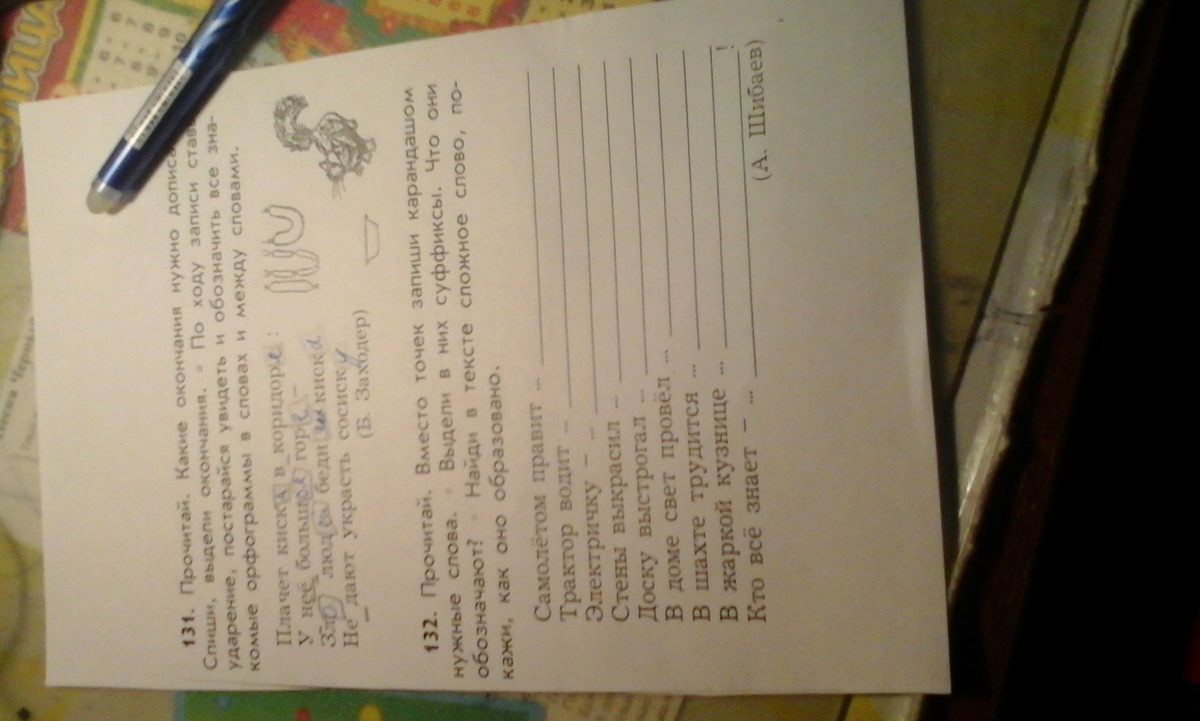 131. Прочитай. Какие окончания нужно
Спиши, выдели окончания. • По ходу записи
ударение, постарайся увидеть и обозначить все зна-
комые орфограммы в словах и между словами.
Плачет киска в коридоре :
У неё большое горе –
люди бедной киска
Не дают украсть сосиску
(Б. Заходер)
132. Прочитай. Вместо точек запиши карандашом
нужные слова. • Выдели в них суффиксы. Что они
обозначают? • Найди в тексте сложное слово, по-
кажи, как оно образовано.
Самолётом правит ...
Трактор водит ...
Электричку – ...
Стены выкрасил ...
Доску выстрогал ...
В доме свет провёл ...
В шахте трудится ...
В жаркой кузнице ...
Кто всё знает – ... !
(А. Шибаев)